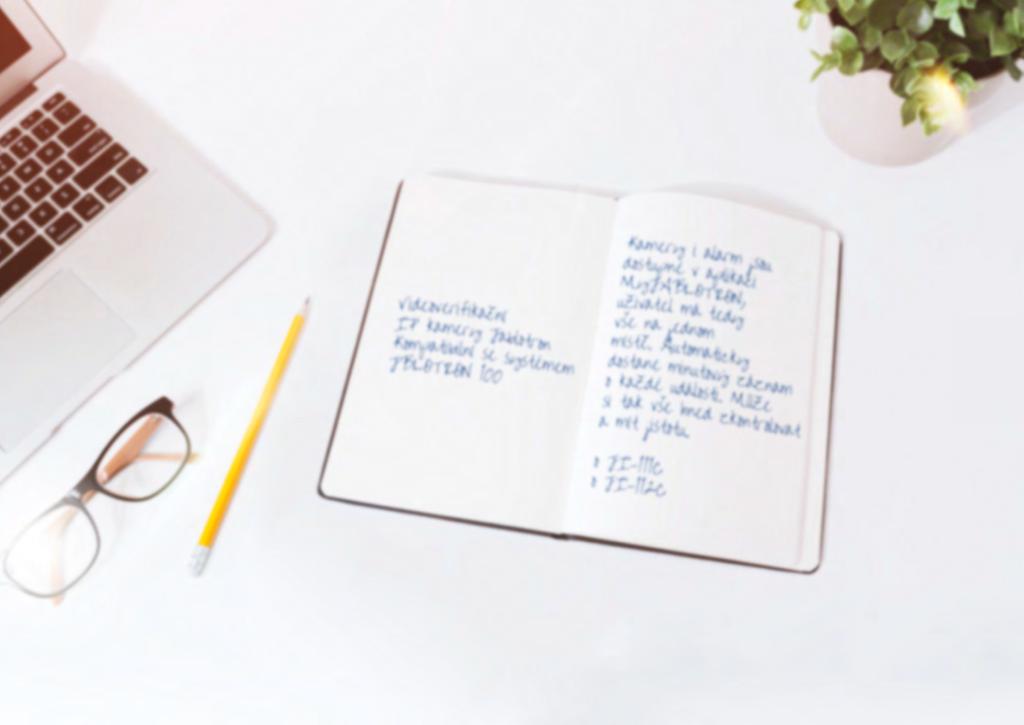 Videoverifikační
IP kamery Jablotron
Kompatibilní se systémem
JBLOTRON 100
Kamery i alarm jsou
dostupné v aplikaci
MyJABLOTRON,
uživatel má tedy
vše na jednom
místě. Automaticky
dostane minutový záznam
o každé události. Může
si tak vše hned zkontrolovat
a mít jistotu.
JI-111C
JI-112C